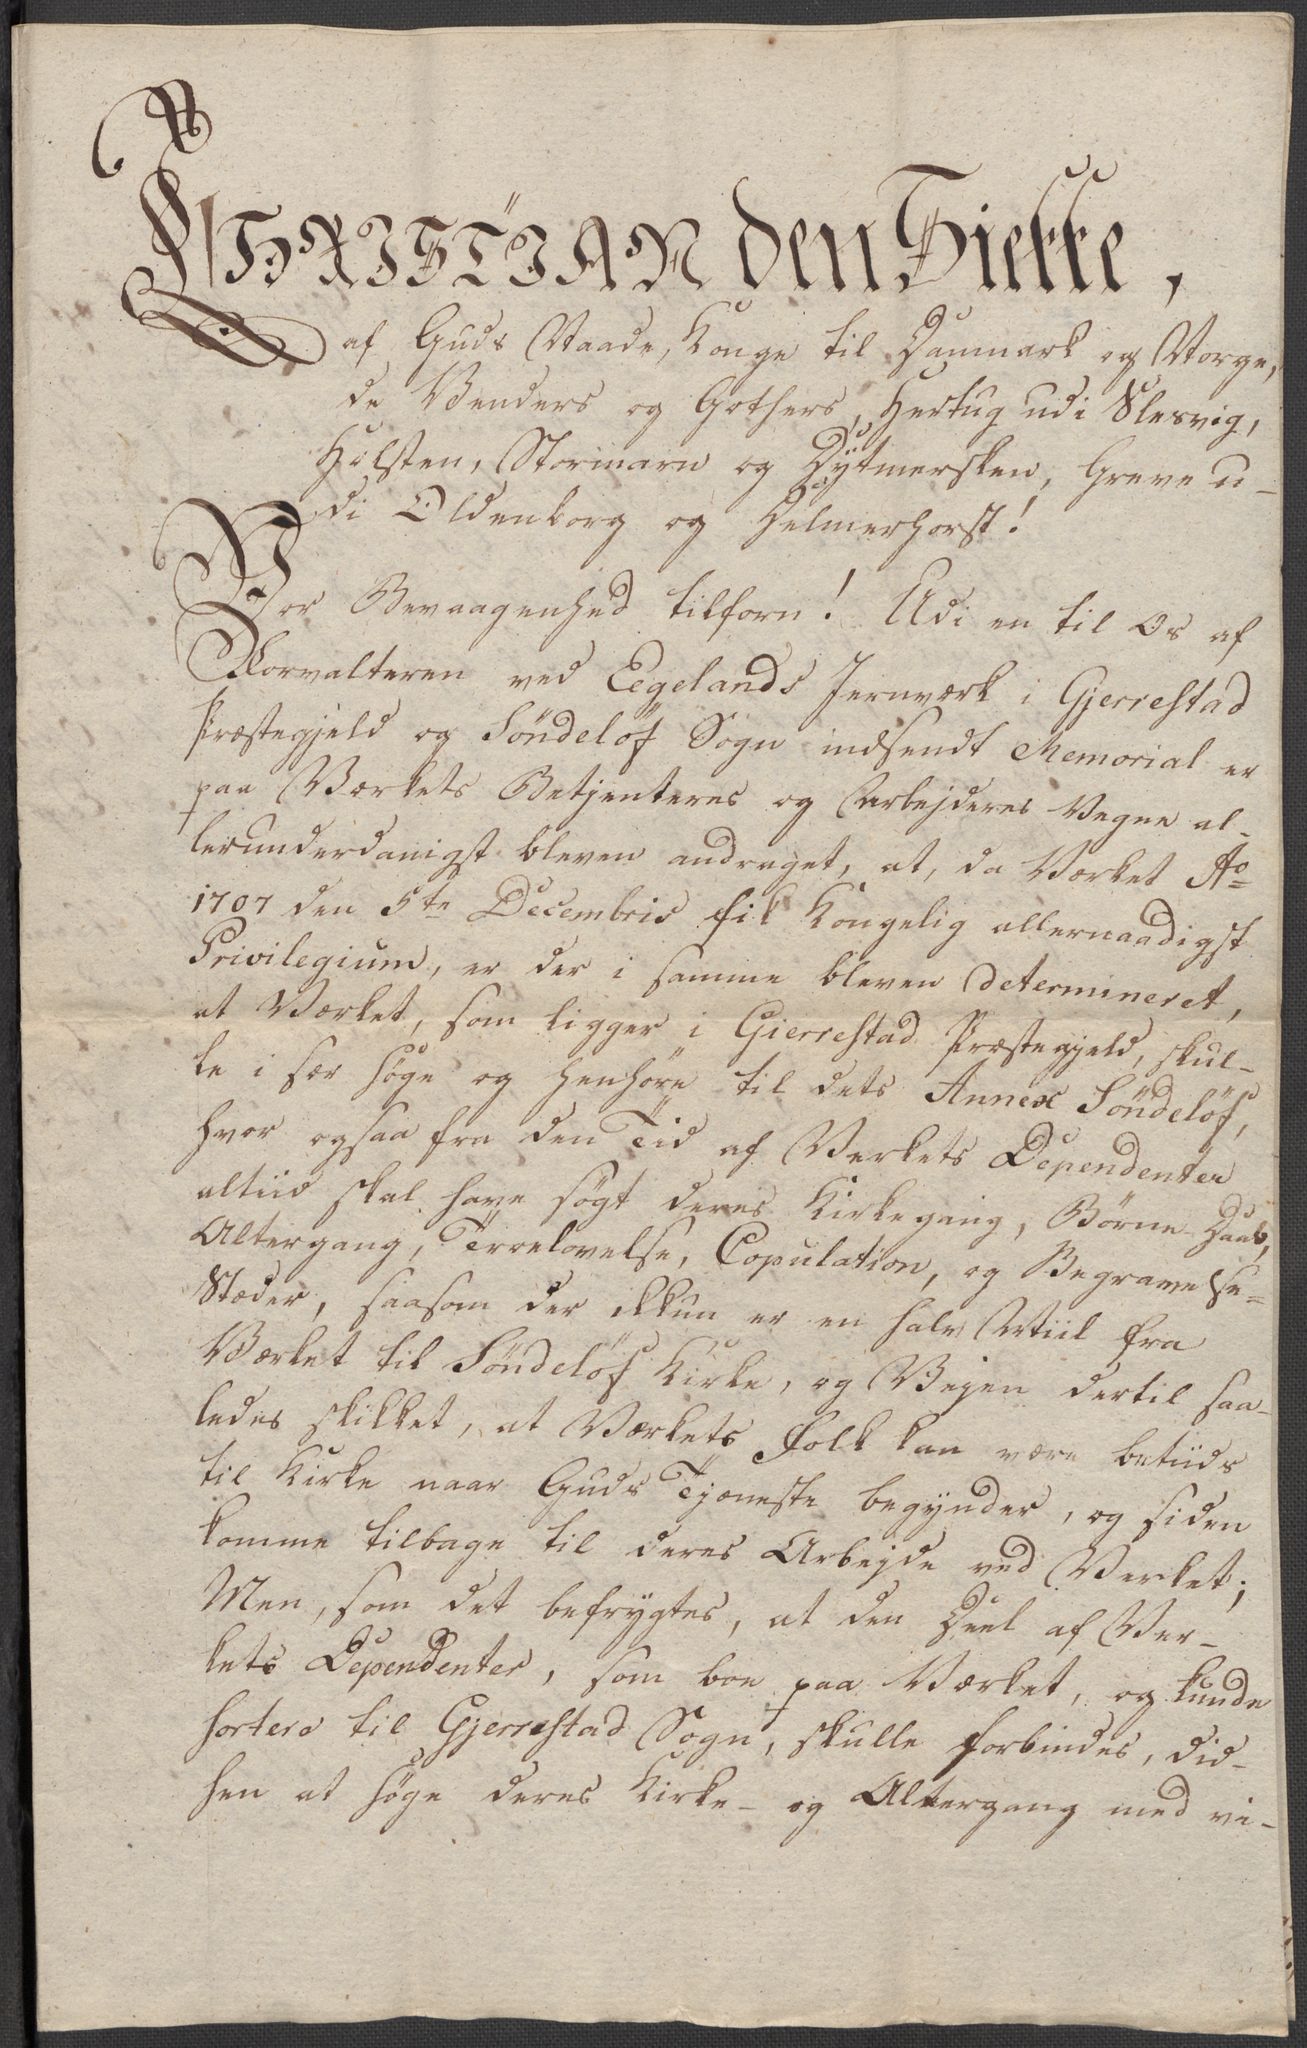 CHRISTIAN den Siette,
af Guds Naade, Konge til Danmark og Norge,
de Venders og Gothers, Hertug udi Slesvig,
Holsten, Stormarn og Dytmersken, Greve u-
di Oldenborg og Delmerhorst!
Vor Bevaagenhed tilforn! Udi en til Os af
Forvalteren ved Eegelands Jernværk i Gjerrestad
Præstegjeld og Söndelöf Sogn indsendt Memorial er
paa Værkets Betjenteres og Arbejderes Vegne al-
lerunderdanigst bleven andraget, at, da Værket Ao
1707 den 5te Decembris fik Kongelig allernaadigst
Privilegium, er der i samme bleven determineret,
at Værket, som ligger i Gierrestad Præstegjeld, skul-
le i sær söge og henhöre til dets Annex Söndelöf,
hvor ogsaa fra den Tid af Verkets Dependenter
altiid skal have sögt deres Kirkegang, Börne-Daab,
Altergang, Trolovelse, Copulation, og Begravelse-
Stæder, saasom der ikkun er en halv Miil fra
Værket til Söndelöf Kirke, og Vejen dertil saa-
ledes skikket, at Værkets Folk kan være betiids
til Kirke naar Guds Tjeneste begynder, og siden
komme tilbage til deres Arbejde ved Verket;
Men, som det befrygtes, at den Deel af Ver-
kets Dependenter, som boe paa Værket, og kunde
sortere til Gjerrestad Sogn, skulle forbindes, did-
hen at söge deres Kirke- og Altergang med vi-